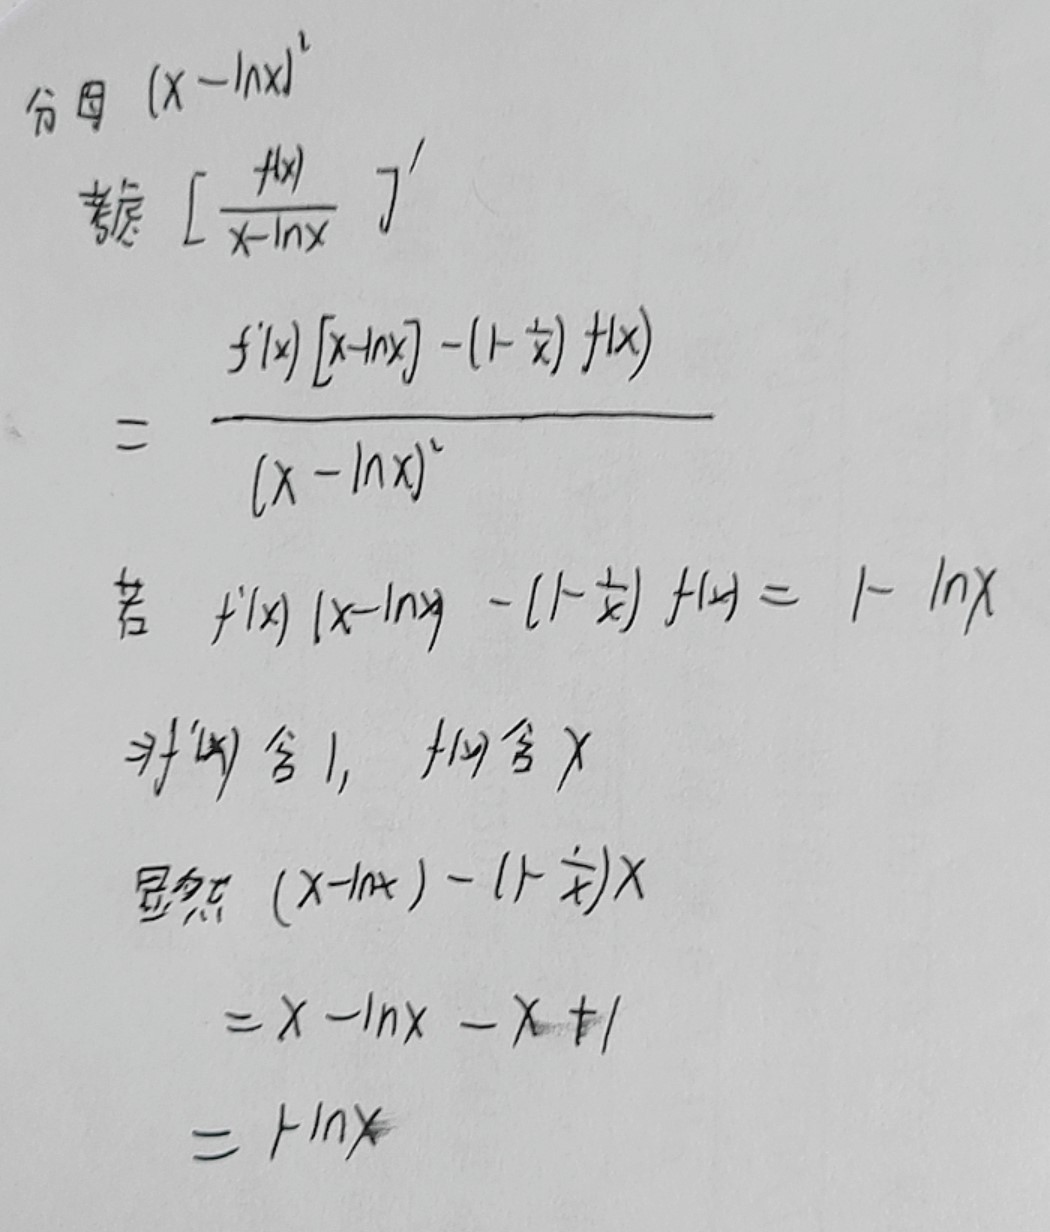 分母 (x-lnx)²
考虑 [f(x)/(x-lnx)]′
= (f′(x)[x-lnx]-(1-1/x)f(x))/(x-lnx)²
若 f′(x)(x-lnx)-(1-1/x)f(x)=1-lnx
⇒f′(x)含1, f(x)含x
显然 (x-lnx)-(1-1/x)x
=x-lnx-x+1
=1-lnx